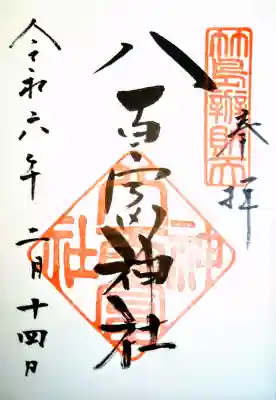 奉拝
竹島辨財天
八百富神社
八百富神社
令和六年 二月十四日